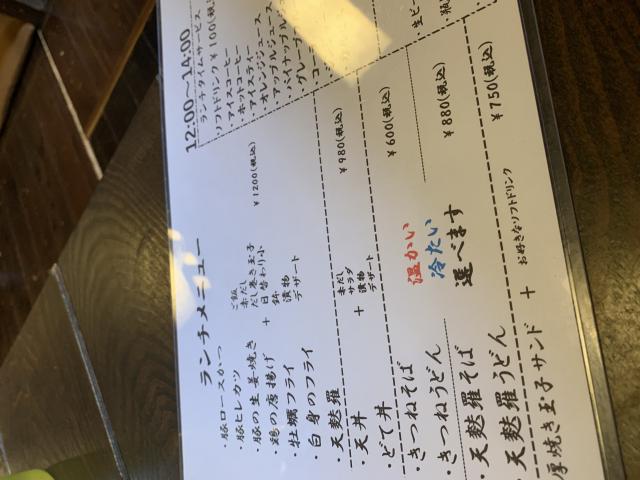 ランチメニュー
・豚ロースかつ
・豚ヒレカツ
・豚の生姜焼き
・鶏の唐揚げ
・牡蠣フライ
・白身のフライ
・天麩羅
+
ご飯
赤だし
だし巻き玉子
日替わり小鉢
漬物
デザート
¥1200(税込)
・天丼
+
赤だし
サラダ
漬物
デザート
¥980(税込)
・どて丼
¥600(税込)
・きつねそば
・きつねうどん
温かい
冷たい
選べます
¥880(税込)
・天麩羅そば
・天麩羅うどん
厚焼き玉子サンド + お好きなソフトドリンク
¥750(税込)
12:00〜14:00
ランチタイムサービス
ソフトドリンク ¥100(税込)
・アイスコーヒー
・ホットコーヒー
・アイスティー
・オレンジジュース
・アップルジュース
・パイナップル
・グレープ
・コー
・生ビー